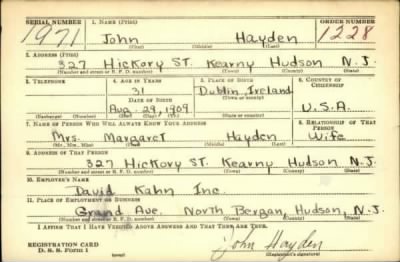 SERIAL NUMBER 1. NAME (Print) ORDER NUMBER
1971 John Hayden 1228
(First) (Middle) (Last)
2. ADDRESS (Print)
327 Hickory ST. Kearny Hudson N.J.
(Number and street or R. F. D. number) (Town) (County) (State)
3. TELEPHONE 4. AGE IN YEARS 5. PLACE OF BIRTH 6. COUNTRY OF CITIZENSHIP
31 Dublin, Ireland
DATE OF BIRTH (Town or county)
Aug. 29, 1909 U.S.A.
(Exchange) (Number) (Mo.) (Day) (Yr.) (State or country)
7. NAME OF PERSON WHO WILL ALWAYS KNOW YOUR ADDRESS 8. RELATIONSHIP OF THAT PERSON
Mrs. Margaret Hayden Wife
(Mr., Mrs., Miss) (First) (Middle) (Last)
9. ADDRESS OF THAT PERSON
327 Hickory ST. Kearny Hudson N.J.
(Number and street or R. F. D. number) (Town) (County) (State)
10. EMPLOYER'S NAME
David Kahn Inc.
11. PLACE OF EMPLOYMENT OR BUSINESS
Grand Ave. North Bergan, Hudson, N.J.
(Number and street or R. F. D. number) (Town) (County) (State)
I AFFIRM THAT I HAVE VERIFIED ABOVE ANSWERS AND THAT THEY ARE TRUE.
REGISTRATION CARD John Hayden
D. S. S. Form 1 (Registrant's signature)